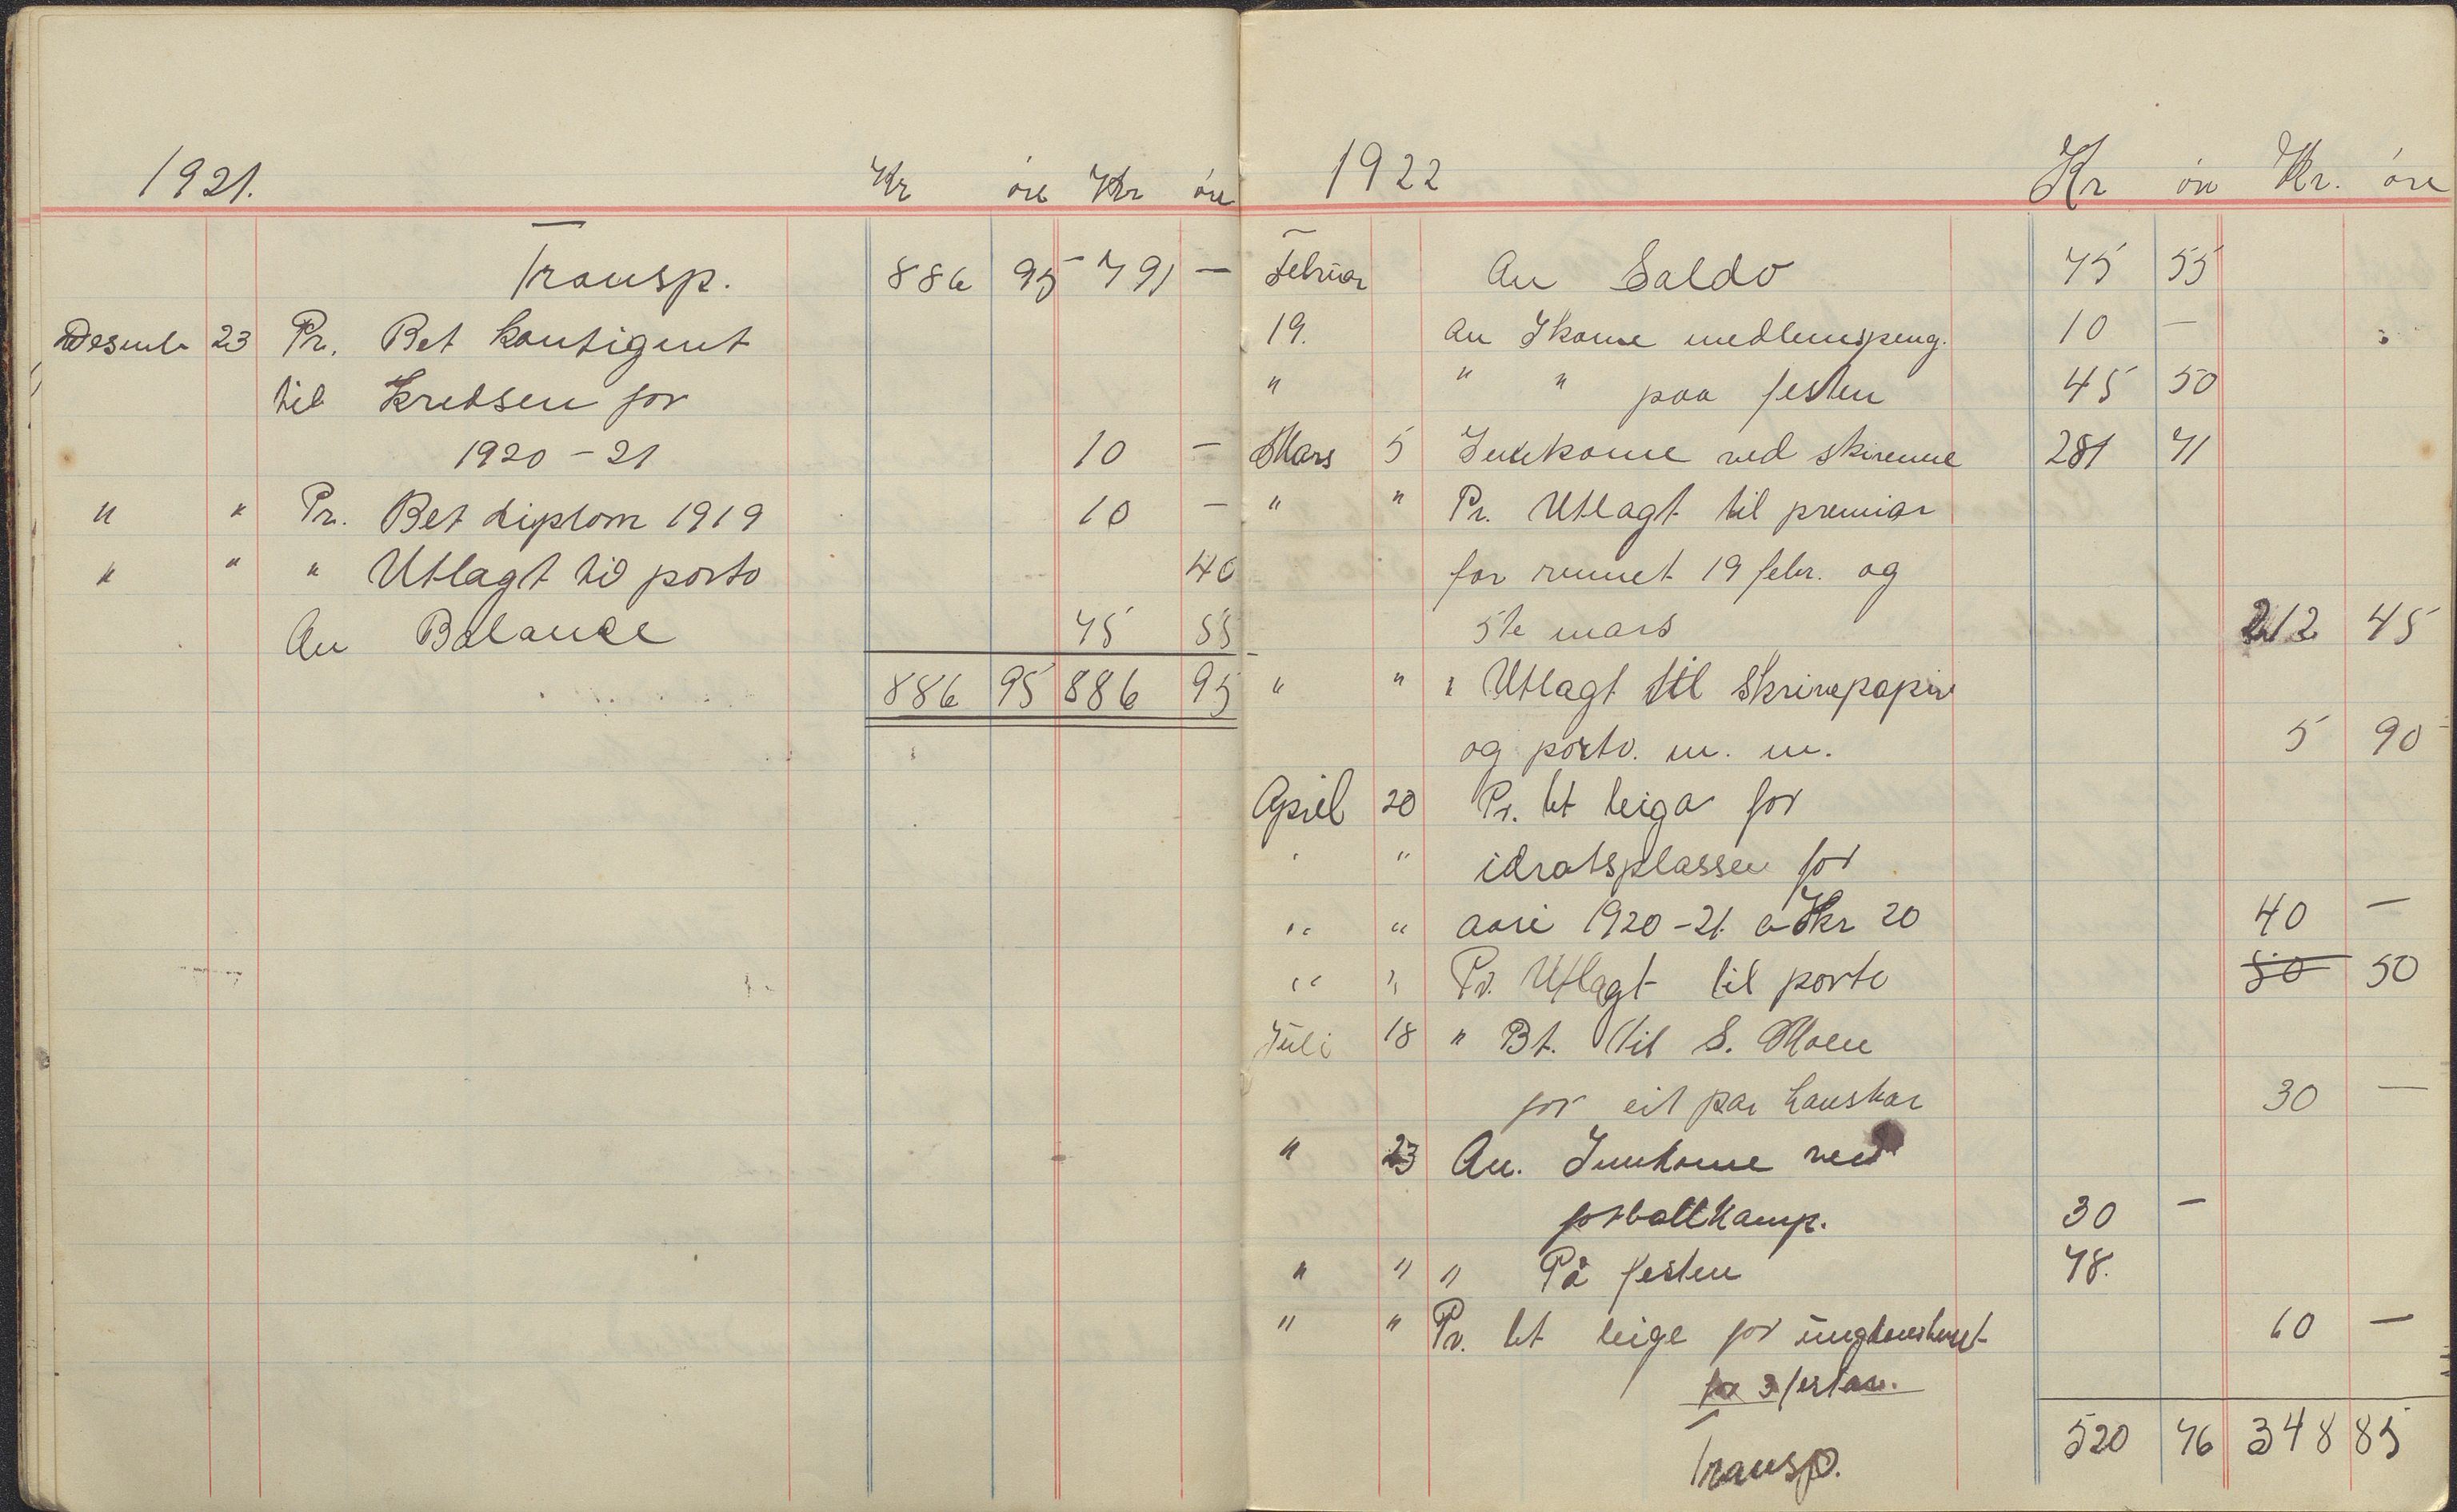 1921. Kr øre Kr øre
Transp. 886 95 791 —
Desemb 23 Pr. Bet kontigent
til Kredsen for
1920 - 21 10 —
" " Pr. Bet diplom 1919 10 —
" " " Utlagt til porto 40
An Balanse 75 55
886 95 886 95
1922 Kr øre Kr. øre
Februar An Saldo 75 55
19. An Ikome medlemspeng. 10 —
" " " paa festen 45 50
Mars 5 Innkome ved skirenne 281 71
" " Pr. Utlagt til premiar
for rennet 19 febr. og
5te mars 212 45
" " " Utlagt til Skrivepapir
og porto. m. m. 5 90
April 20 Pr. bet leiga for
" " idrotsplassen for
" " aari 1920-21 a Kr 20 40 —
" " Pr. Utlagt til porto 50 50
Juli 18 " Bt. til S. Moen
for eit par hanskar 30 —
" 23 An. Innkome ved
fotballkamp. 30 —
" " " På festen 78.
" " Pr. bet leige for ungdomshuset 60 —
for 3 festar.
Transp. 520 76 348 85